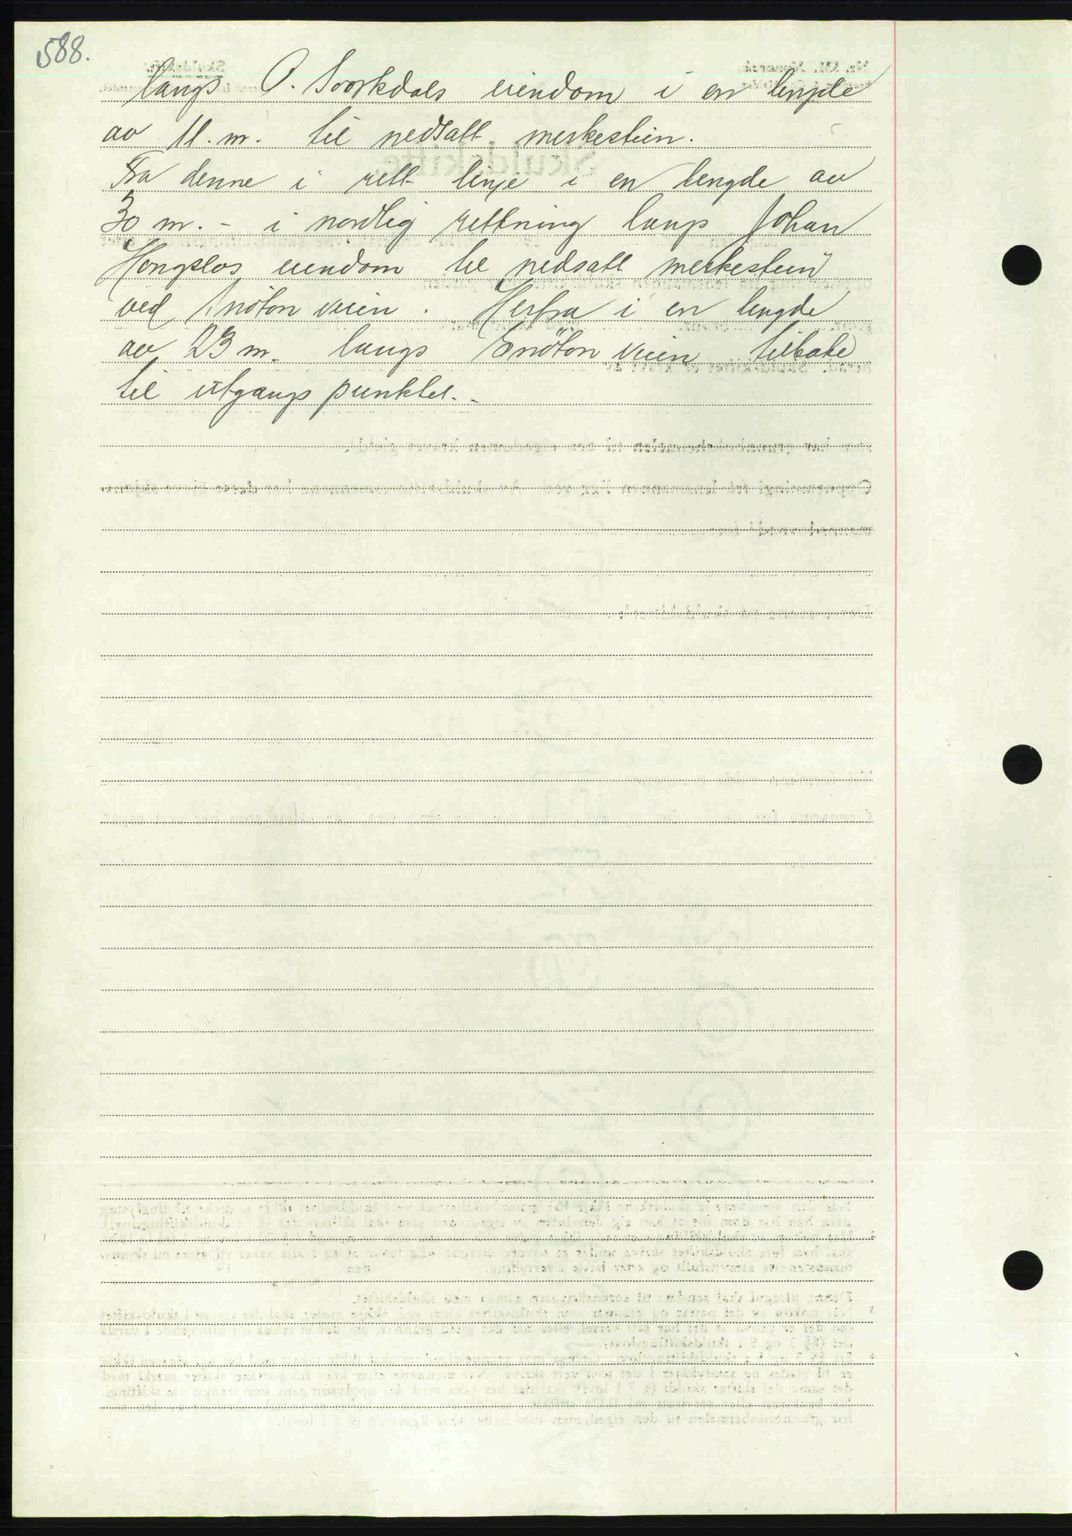 588.
langs O. Svorkdals eiendom i en lengde
av 11. m. til nedsatt merkestein.
Fra denne i rett linje i en lengde av
30 m. - i nordlig rettning langs Johan
Hongslos eiendom til nedsatt merkestein
ved veien. Herfra i en lengde
av 23 m. langs veien tilbake
til utgangspunktet. -